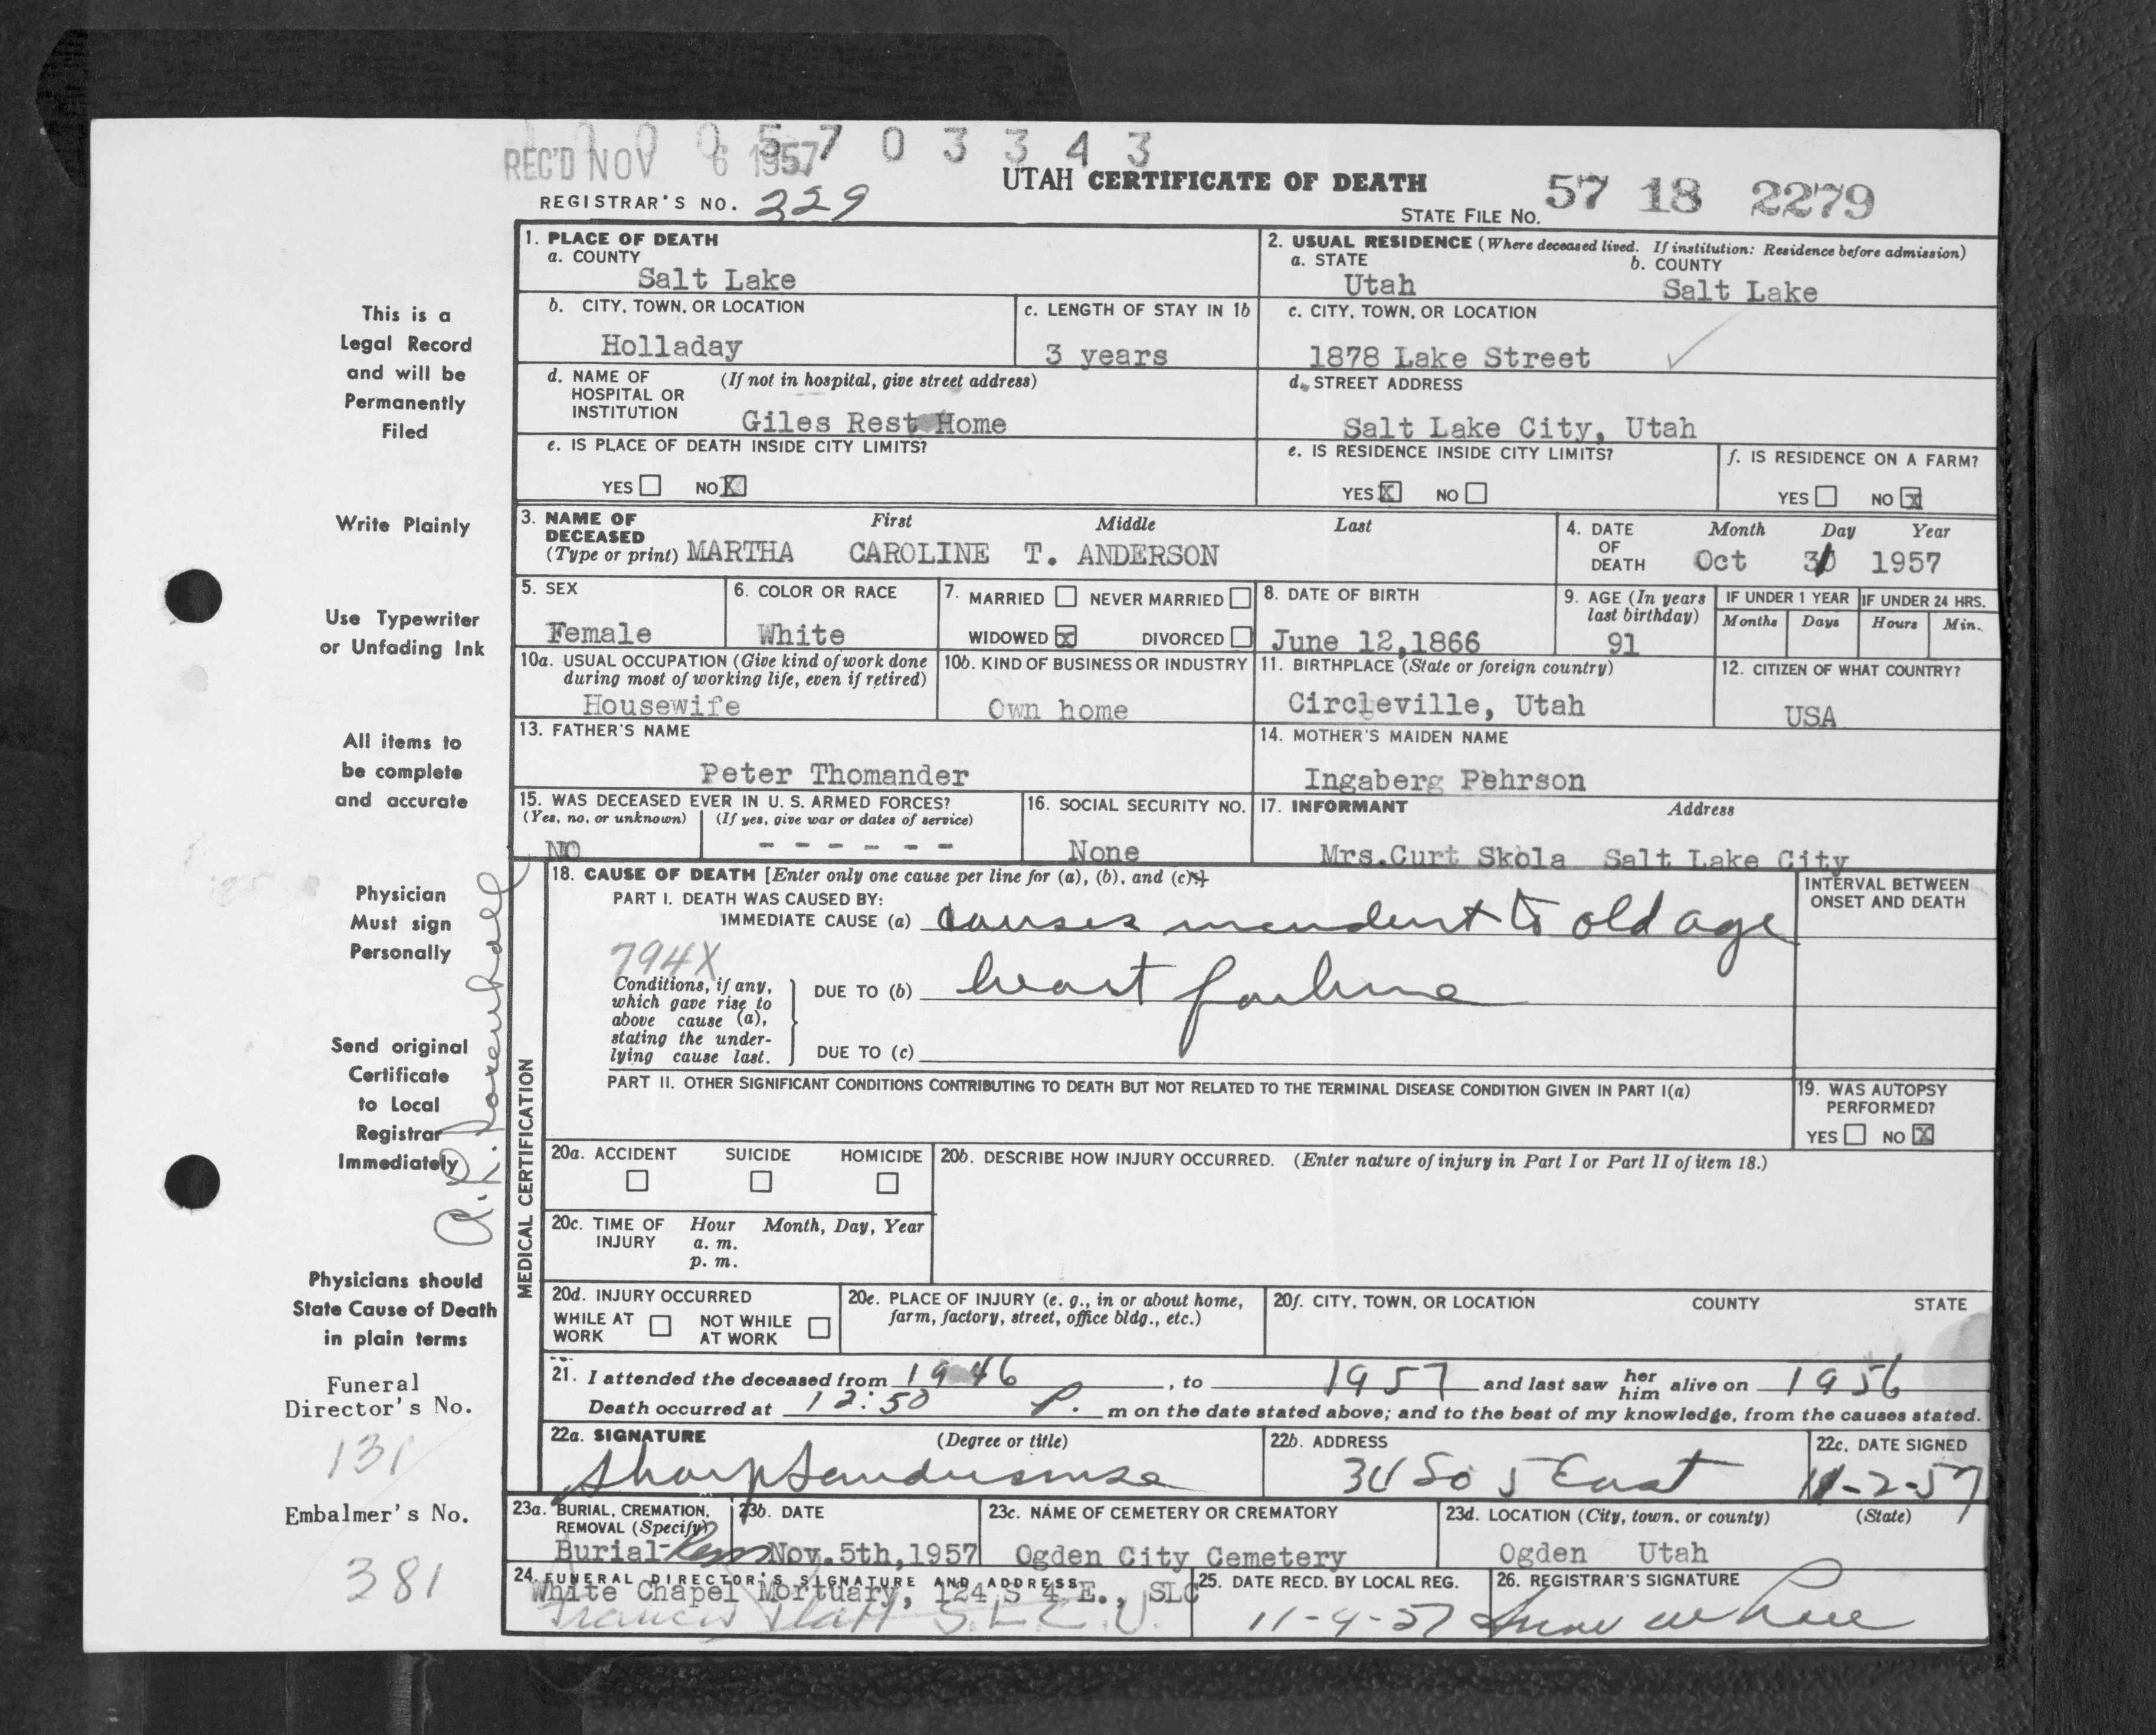 1 0 0 5 7 0 3 3 4 3
REC'D NOV 6 1957
UTAH CERTIFICATE OF DEATH
REGISTRAR'S NO. 229
STATE FILE NO. 57 18 2279
1. PLACE OF DEATH
a. COUNTY
Salt Lake
2. USUAL RESIDENCE (Where deceased lived. If institution: Residence before admission)
a. STATE b. COUNTY
Utah Salt Lake
b. CITY, TOWN, OR LOCATION
Holladay
c. LENGTH OF STAY IN 1b
3 years
c. CITY, TOWN, OR LOCATION
1878 Lake Street
d. NAME OF (If not in hospital, give street address)
HOSPITAL OR
INSTITUTION Giles Rest Home
d. STREET ADDRESS
Salt Lake City, Utah
e. IS PLACE OF DEATH INSIDE CITY LIMITS?
YES NO X
e. IS RESIDENCE INSIDE CITY LIMITS?
YES X NO
f. IS RESIDENCE ON A FARM?
YES NO X
3. NAME OF First Middle Last
DECEASED
(Type or print) MARTHA CAROLINE T. ANDERSON
4. DATE Month Day Year
OF
DEATH Oct 31 1957
5. SEX
Female
6. COLOR OR RACE
White
7. MARRIED NEVER MARRIED
WIDOWED X DIVORCED
8. DATE OF BIRTH
June 12,1866
9. AGE (In years
last birthday)
91
IF UNDER 1 YEAR IF UNDER 24 HRS.
Months Days Hours Min.
10a. USUAL OCCUPATION (Give kind of work done
during most of working life, even if retired)
Housewife
10b. KIND OF BUSINESS OR INDUSTRY
Own home
11. BIRTHPLACE (State or foreign country)
Circleville, Utah
12. CITIZEN OF WHAT COUNTRY?
USA
13. FATHER'S NAME
Peter Thomander
14. MOTHER'S MAIDEN NAME
Ingaberg Pehrson
15. WAS DECEASED EVER IN U. S. ARMED FORCES?
(Yes, no, or unknown) (If yes, give war or dates of service)
NO - - - - - -
16. SOCIAL SECURITY NO.
None
17. INFORMANT Address
Mrs.Curt Skola Salt Lake City
18. CAUSE OF DEATH [Enter only one cause per line for (a), (b), and (c).]
PART I. DEATH WAS CAUSED BY:
IMMEDIATE CAUSE (a) causes incident to old age
INTERVAL BETWEEN
ONSET AND DEATH
794X
Conditions, if any,
which gave rise to
above cause (a),
stating the under-
lying cause last.
DUE TO (b) heart failure
DUE TO (c)
PART II. OTHER SIGNIFICANT CONDITIONS CONTRIBUTING TO DEATH BUT NOT RELATED TO THE TERMINAL DISEASE CONDITION GIVEN IN PART I(a)
19. WAS AUTOPSY
PERFORMED?
YES NO X
MEDICAL CERTIFICATION
20a. ACCIDENT SUICIDE HOMICIDE
20b. DESCRIBE HOW INJURY OCCURRED. (Enter nature of injury in Part I or Part II of item 18.)
20c. TIME OF Hour Month, Day, Year
INJURY a. m.
p. m.
20d. INJURY OCCURRED
WHILE AT NOT WHILE
WORK AT WORK
20e. PLACE OF INJURY (e. g., in or about home,
farm, factory, street, office bldg., etc.)
20f. CITY, TOWN, OR LOCATION COUNTY STATE
21. I attended the deceased from 1946, to 1957 and last saw her him alive on 1956
Death occurred at 12:50 P. m on the date stated above; and to the best of my knowledge, from the causes stated.
22a. SIGNATURE (Degree or title)
22b. ADDRESS
34 So 5 East
22c. DATE SIGNED
11-2-57
23a. BURIAL, CREMATION,
REMOVAL (Specify)
Burial-Rem
23b. DATE
Nov.5th,1957
23c. NAME OF CEMETERY OR CREMATORY
Ogden City Cemetery
23d. LOCATION (City, town, or county) (State)
Ogden Utah
24. FUNERAL DIRECTOR'S SIGNATURE AND ADDRESS
White Chapel Mortuary, 124 S 4 E., SLC
Francis Platt S.L.C. U.
25. DATE RECD. BY LOCAL REG.
11-4-57
26. REGISTRAR'S SIGNATURE
This is a
Legal Record
and will be
Permanently
Filed
Write Plainly
Use Typewriter
or Unfading Ink
All items to
be complete
and accurate
Physician
Must sign
Personally
Send original
Certificate
to Local
Registrar
Immediately
Physicians should
State Cause of Death
in plain terms
Funeral
Director's No.
131
Embalmer's No.
381